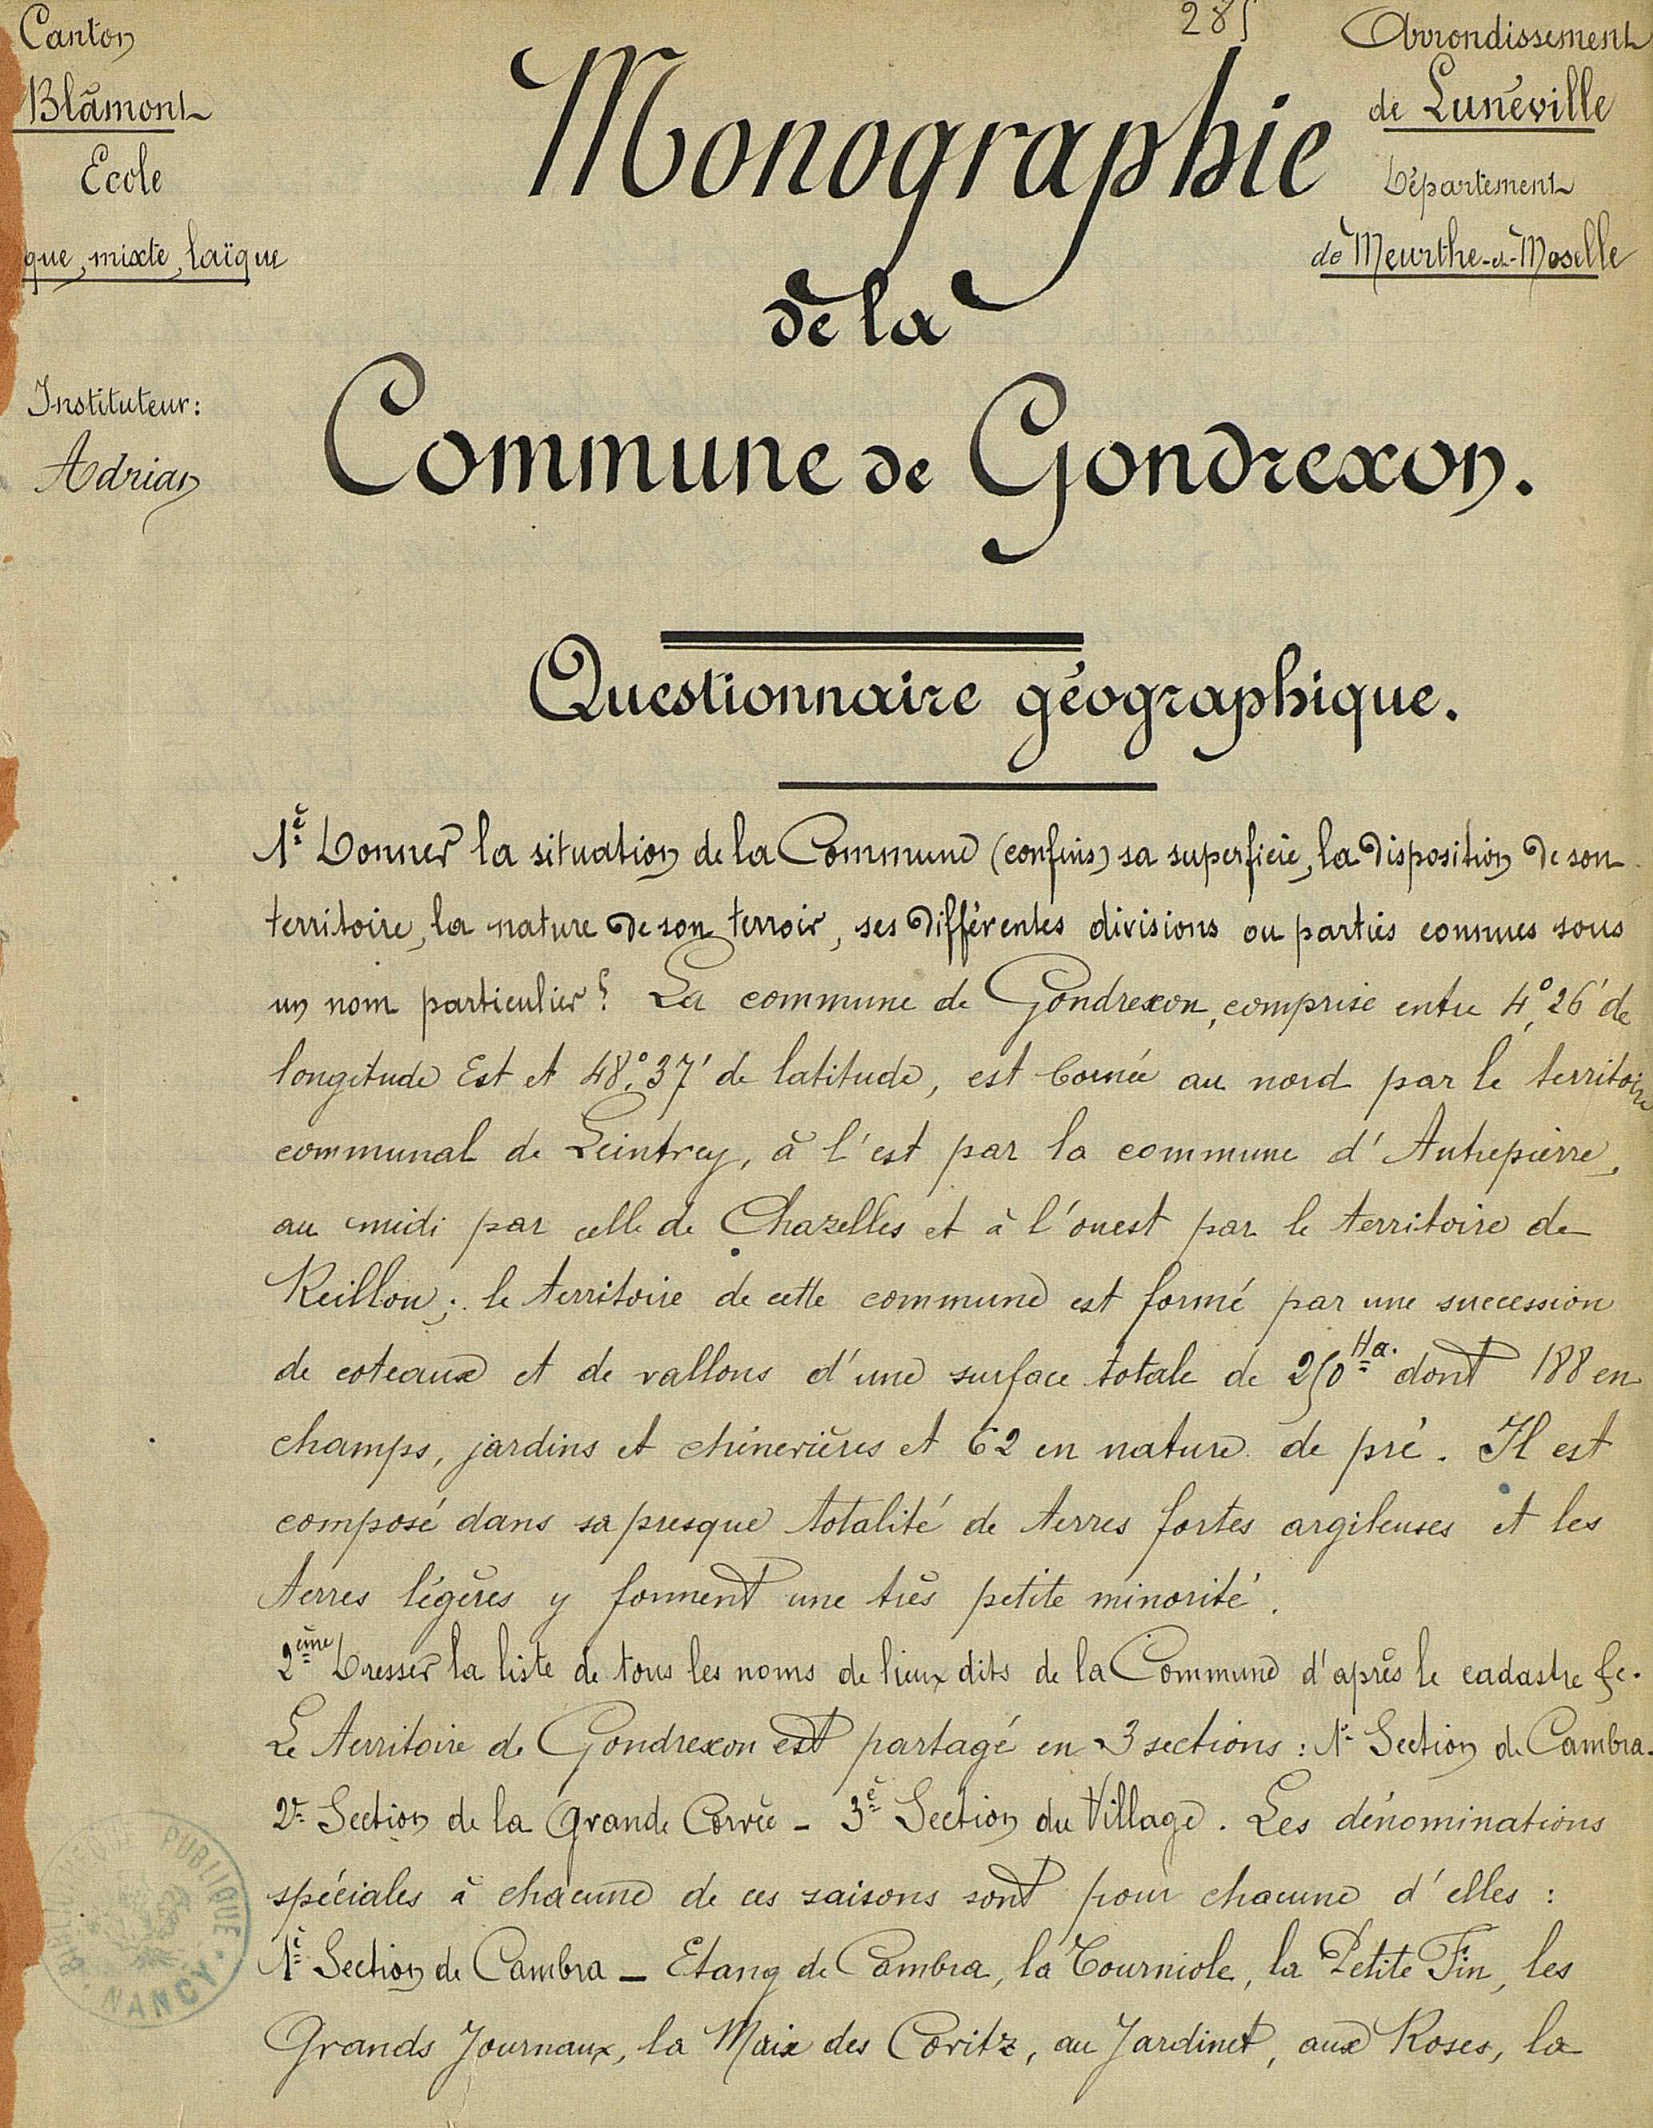 Canton
Blâmont
Ecole
que, mixte, laïque
Instituteur:
Adrian
285
Arrondissement
de Lunéville
Département
de Meurthe-et-Moselle
Monographie
de la
Commune de Gondrexon.
Questionnaire géographique.
1è Donner la situation de la Commune (confins) sa superficie, la disposition de son
territoire, la nature de son terroir, ses différentes divisions ou parties connues sous
un nom particulier? La commune de Gondrexon, comprise entre 4°,26' de
longitude Est et 48°,37' de latitude, est bornée au nord par le territoire
communal de Leintrey, à l'est par la commune d'Autrepierre,
au midi par celle de Chazelles et à l'ouest par le territoire de
Reillon; le territoire de cette commune est formé par une succession
de coteaux et de vallons d'une surface totale de 250 Ha. dont 188 en
champs, jardins et chènevières et 62 en nature de pré. Il est
composé dans sa presque totalité de terres fortes argileuses et les
terres légères y forment une très petite minorité.
2ème Dresser la liste de tous les noms de lieux dits de la Commune d'après le cadastre &c.
Le territoire de Gondrexon est partagé en 3 sections: 1è Section de Cambra.
2e Section de la Grande Corvée - 3è Section du Village. Les dénominations
spéciales à chacune de ces saisons sont pour chacune d'elles:
1è Section de Cambra - Etang de Cambra, la Tourniole, la Petite Fin, les
Grands Journaux, la Maix des Coritz, au Jardinet, aux Roses, la
BIBLIOTHÈQUE PUBLIQUE
NANCY